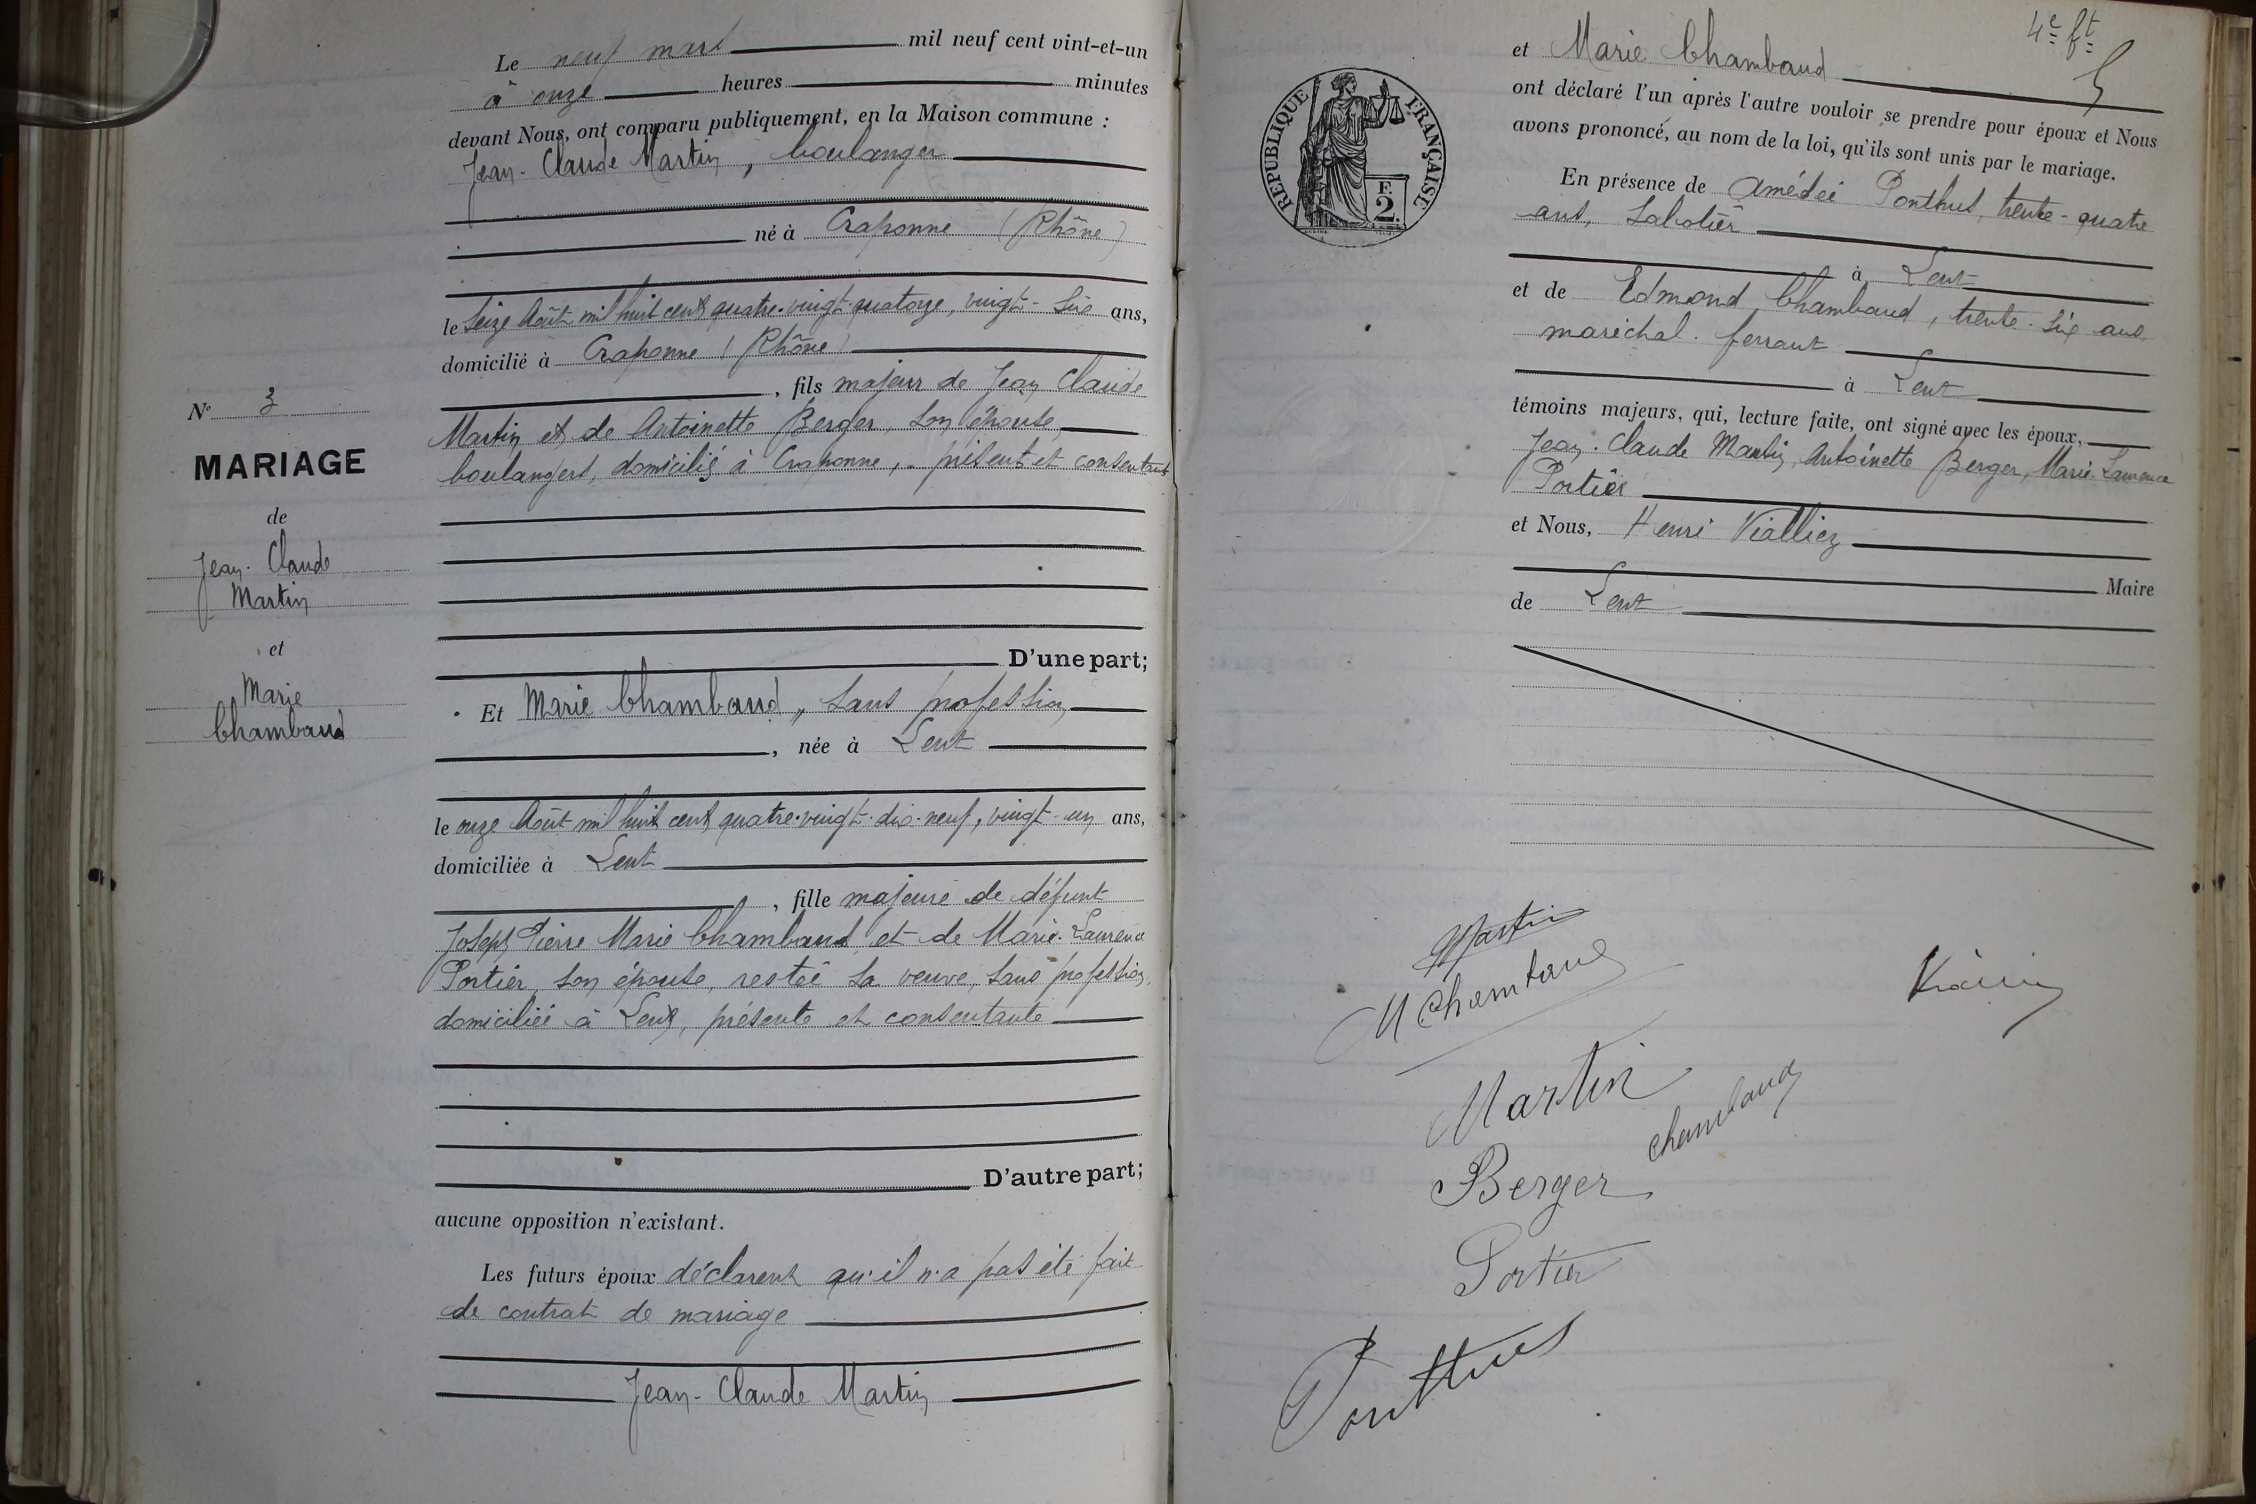 Le neuf mars mil neuf cent vint-et-un
à onze heures minutes
devant Nous, ont comparu publiquement, en la Maison commune :
Jean-Claude Martin, boulanger
né à Craponne (Rhône)
le seize Août mil huit cent quatre-vingt-quatorze, vingt-six ans,
domicilié à Craponne (Rhône)
, fils majeur de Jean Claude
Martin et de Antoinette Berger, son épouse,
boulangers, domiciliés à Craponne, présents et consentants
D'une part;
Et Marie Chambaud, sans profession
, née à Lent
le onze Août mil huit cent quatre-vingt-dix-neuf, vingt-un ans,
domiciliée à Lent
, fille majeure de défunt
Joseph Pierre Marie Chambaud et de Marie-Laurence
Portier, son épouse, restée sa veuve, sans profession,
domiciliée à Lent, présente et consentante
D'autre part;
aucune opposition n'existant.
Les futurs époux déclarent qu'il n'a pas été fait
de contrat de mariage
Jean-Claude Martin
N° 3
MARIAGE
de
Jean-Claude
Martin
et
Marie
Chambaud
4e ft
5
RÉPUBLIQUE FRANÇAISE
F.
2
et Marie Chambaud
ont déclaré l'un après l'autre vouloir se prendre pour époux et Nous
avons prononcé, au nom de la loi, qu'ils sont unis par le mariage.
En présence de Amédée Ponthus, trente-quatre
ans, sabotier
à Lent
et de Edmond Chambaud, trente-six ans,
maréchal-ferrant
à Lent
témoins majeurs, qui, lecture faite, ont signé avec les époux,
Jean-Claude Martin, Antoinette Berger, Marie-Laurence
Portier
et Nous, Henri Vialliez
Maire
de Lent
Martin
M Chambaud
Martin
Chambaud
Berger
Portier
Ponthus